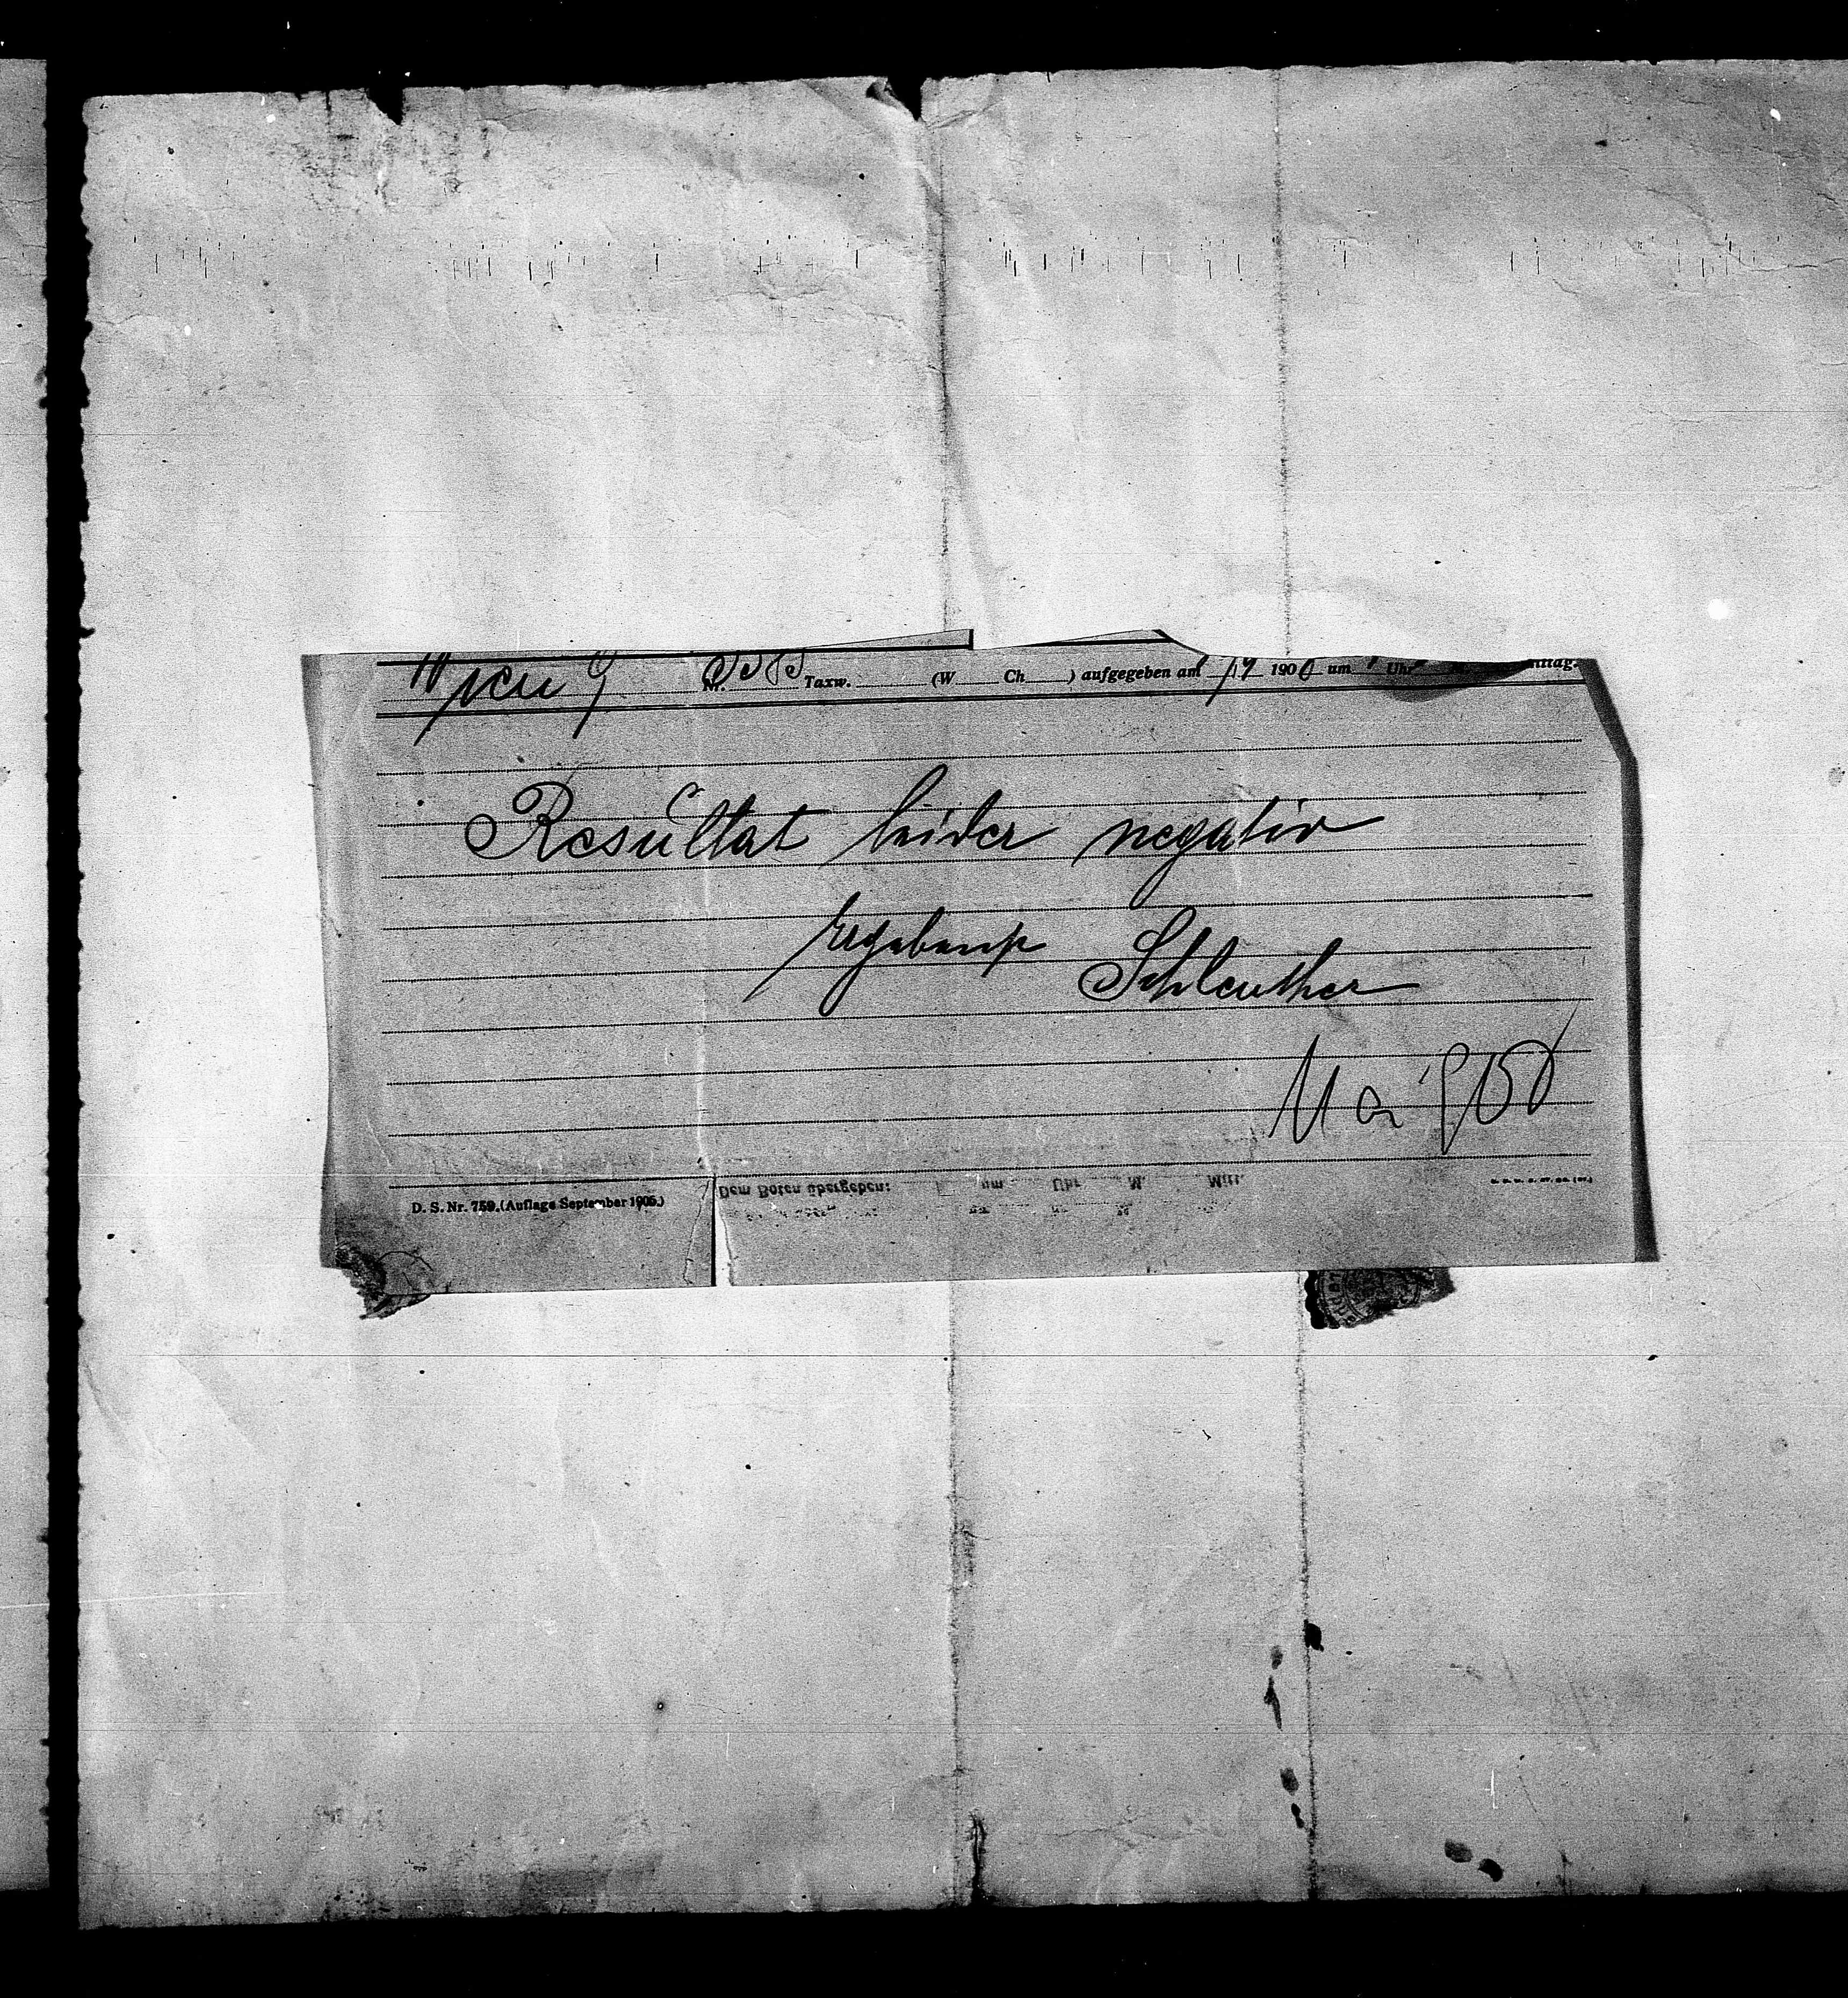 Wien 9 Nr. Taxw. (W Ch ) aufgegeben am /19 190 um Uhr ittag.
Resultat leider negativ
ergebenst Schleuther
D. S. Nr. 759. (Auflage September 1905.)
Dem Boten übergeben: um Uhr M. Mitt.